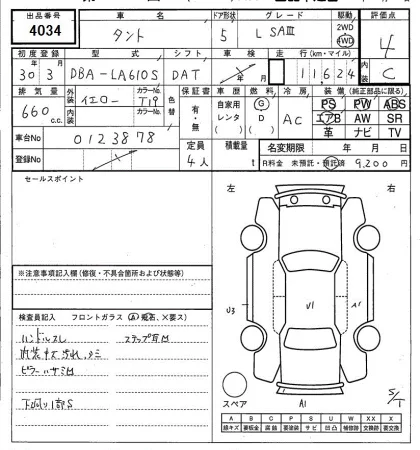 出品番号 車名 ドア形状 グレード 駆動 評価点
4034 タント 5 L SAⅢ 2WD 4WD 4
初度登録 型式 シフト 車検 走行(km・マイル) 内装
30年3月 DBA-LA610S DAT 年 月 11,624 C
排気量 外装 イエロー カラーNo T19 色替 保証書 車歴 燃料 冷房 装備(純正部品に限る)
660 c.c. 内装 カラーNo 有・無 自家用 レンタ G D AC PS PW ABS
エアB AW SR
革 ナビ TV
車台No 0123878 定員 積載量 名変期限 年 月 日
登録No 4人 t R料金 未預託・預託済 9,200円
セールスポイント
左 右
※注意事項記入欄(修復・不具合箇所および状態等)
検査員記入 フロントガラス(A)飛石、×要ス)
ハンドルスレ ステップ耳凹
内装キズ汚れ、シミ
ピラーハサミ凹
下廻り1部S
U3 U1 A1
スペア A1 S/T
A B C P S U W X XX
線キズ 要板金 腐蝕 要塗装 サビ 凹凸 補修跡 要交換